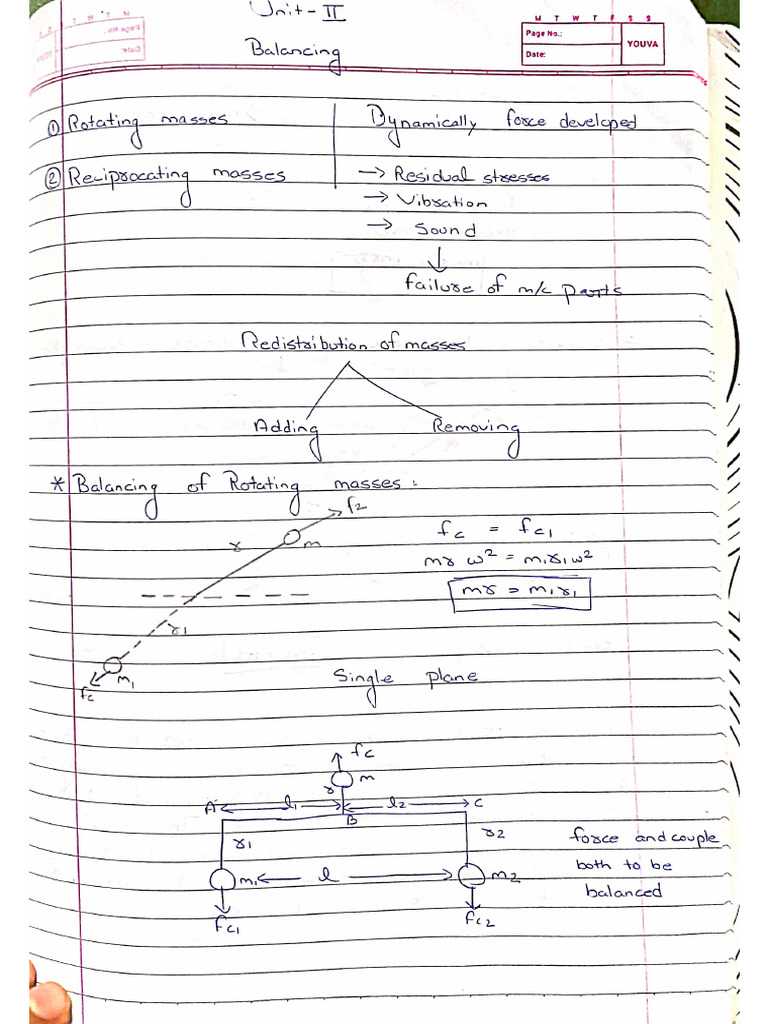 Unit - II
M T W T F S S
Page No.:
Date:
YOUVA
Balancing
① Rotating masses
② Reciprocating masses
Dynamically force developed
→ Residual stresses
→ Vibration
→ Sound
↓
failure of m/c parts
Redistribution of masses
Adding Removing
* Balancing of Rotating masses :
f2
r m
r1
m1
fc
fc = fc1
mr ω² = m1r1ω²
mr = m1r1
Single plane
fc
m
r
A l1 l2 C
B
r1 r2
m1 l m2
fc1 fc2
force and couple
both to be
balanced